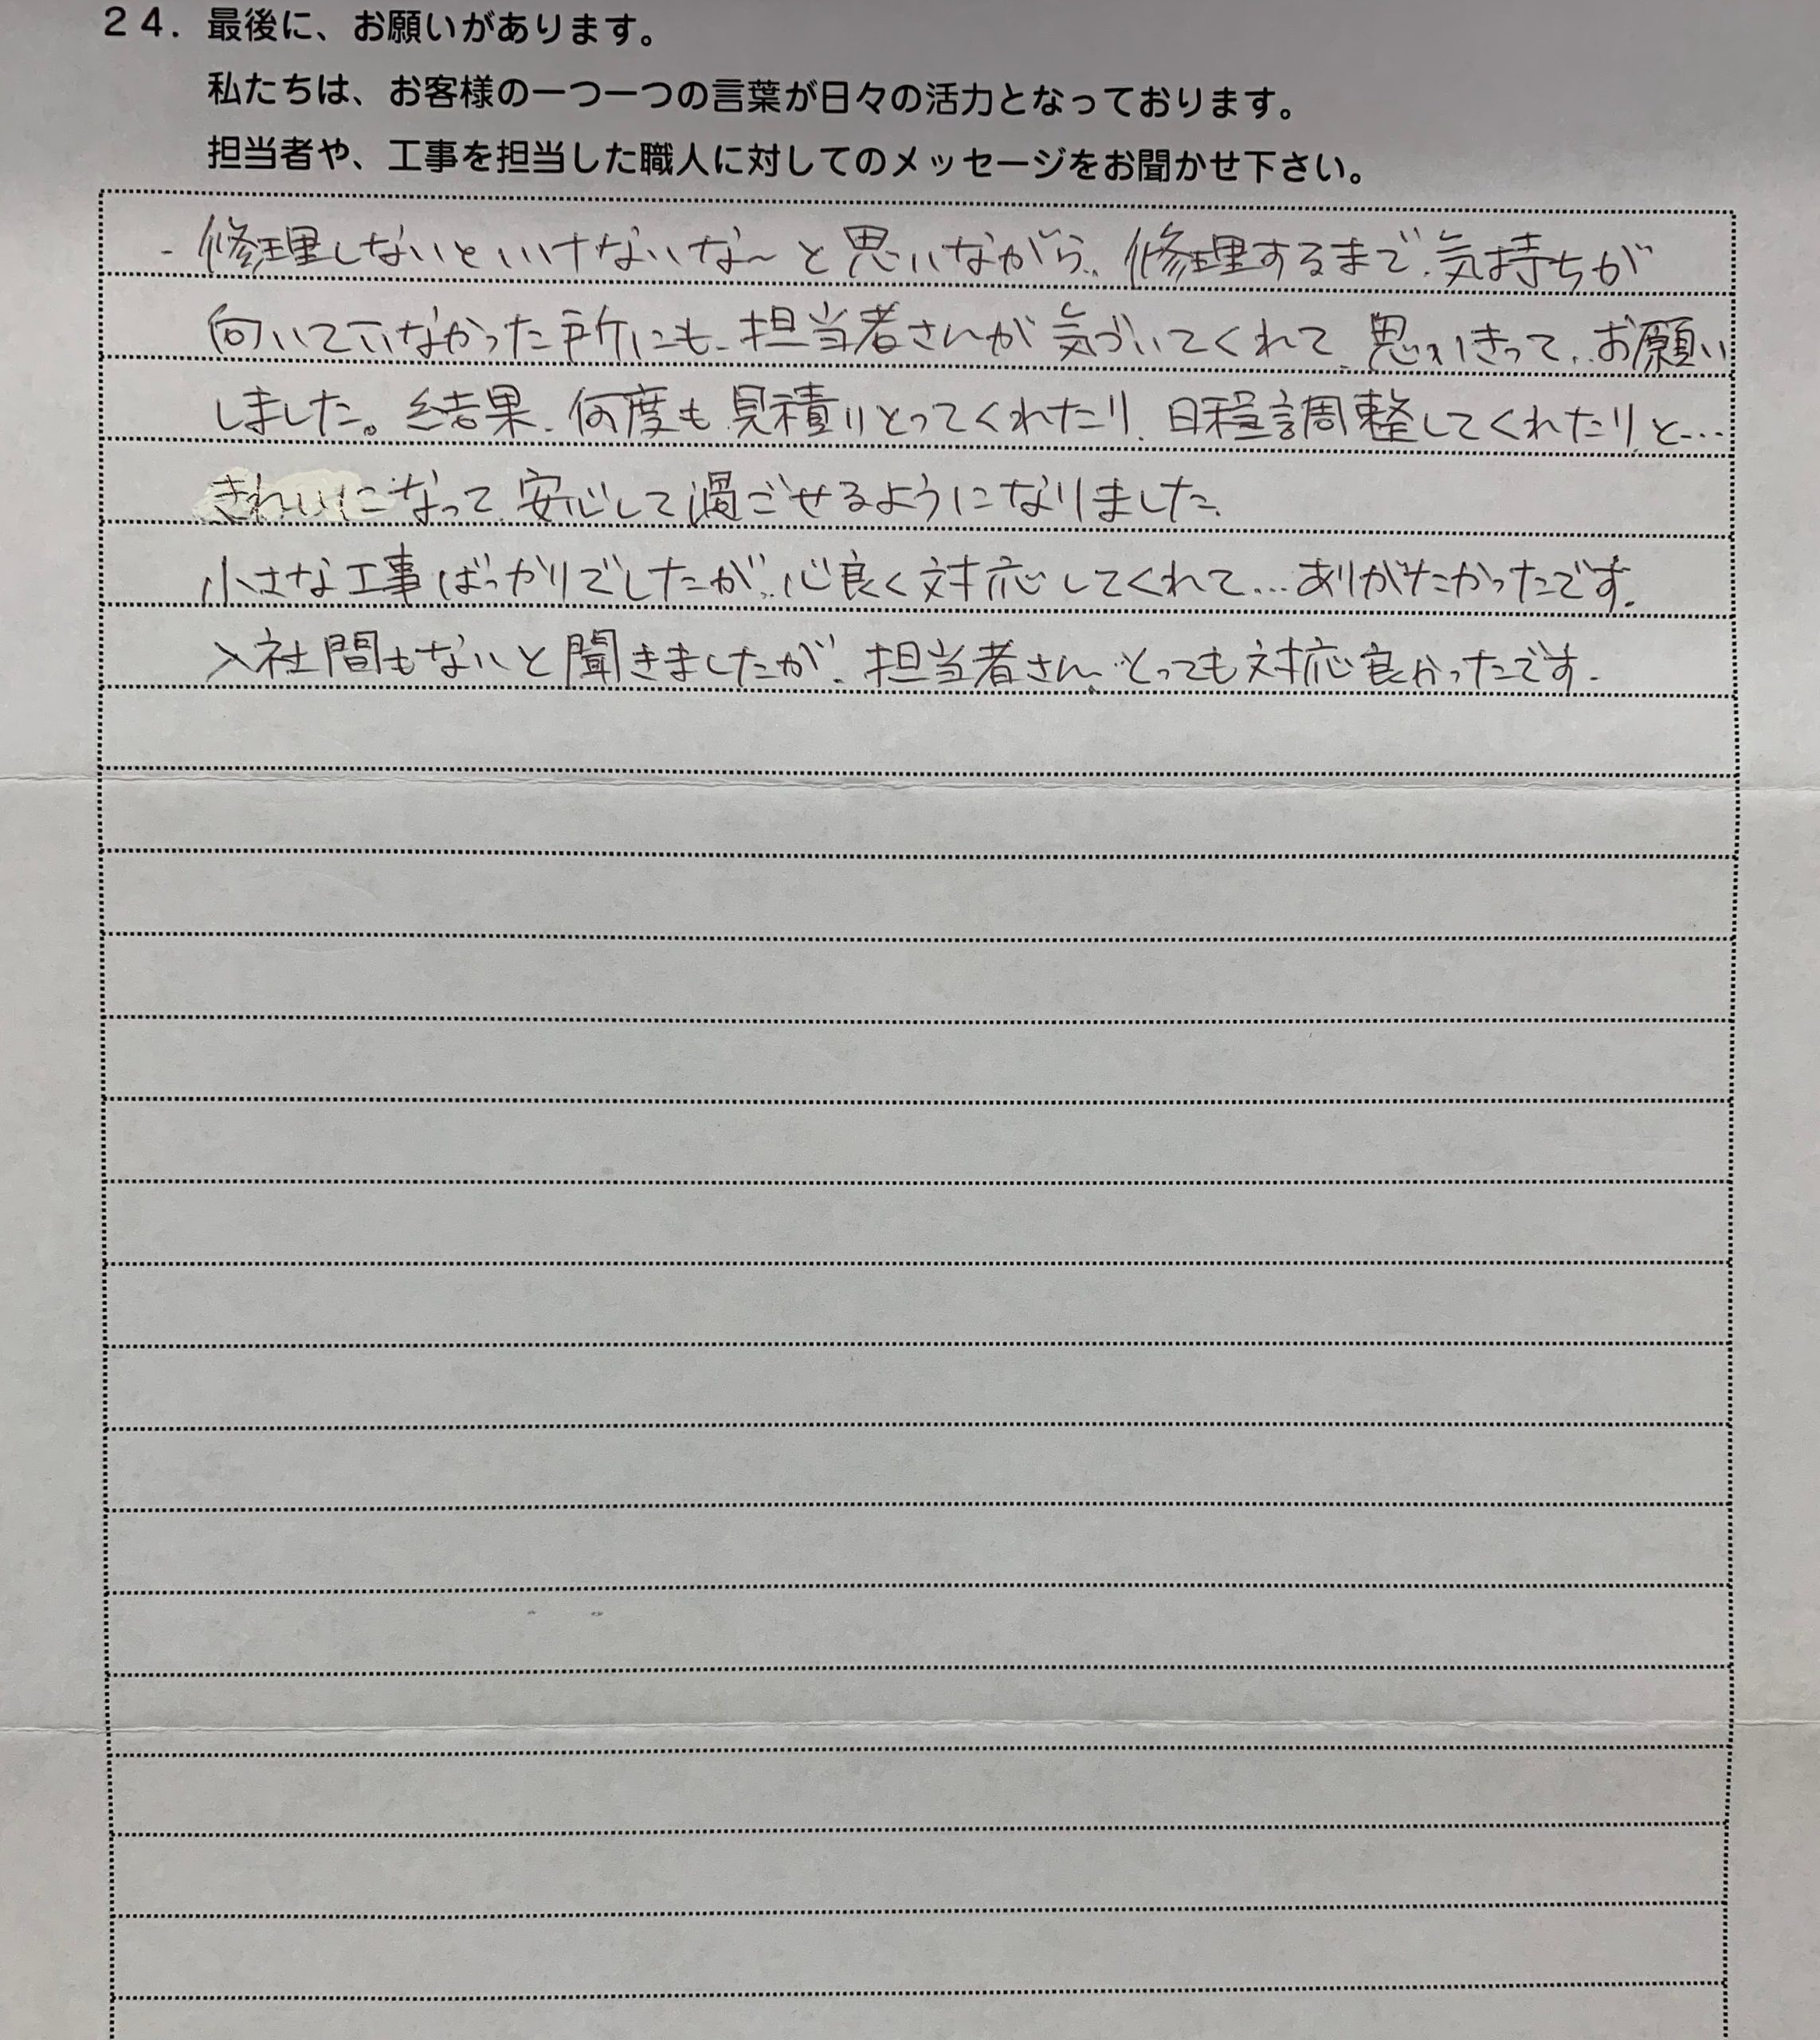 24. 最後に、お願いがあります。
私たちは、お客様の一つ一つの言葉が日々の活力となっております。
担当者や、工事を担当した職人に対してのメッセージをお聞かせ下さい。
- 修理しないといけないな〜と思いながら、修理するまで、気持ちが
向いていなかった所にも、担当者さんが気づいてくれて、思いきって、お願い
しました。結果、何度も見積りとってくれたり、日程調整してくれたりと…
きれいになって、安心して過ごせるようになりました。
小さな工事ばっかりでしたが、心良く対応してくれて…ありがたかったです。
入社間もないと聞きましたが、担当者さん、とっても対応良かったです。